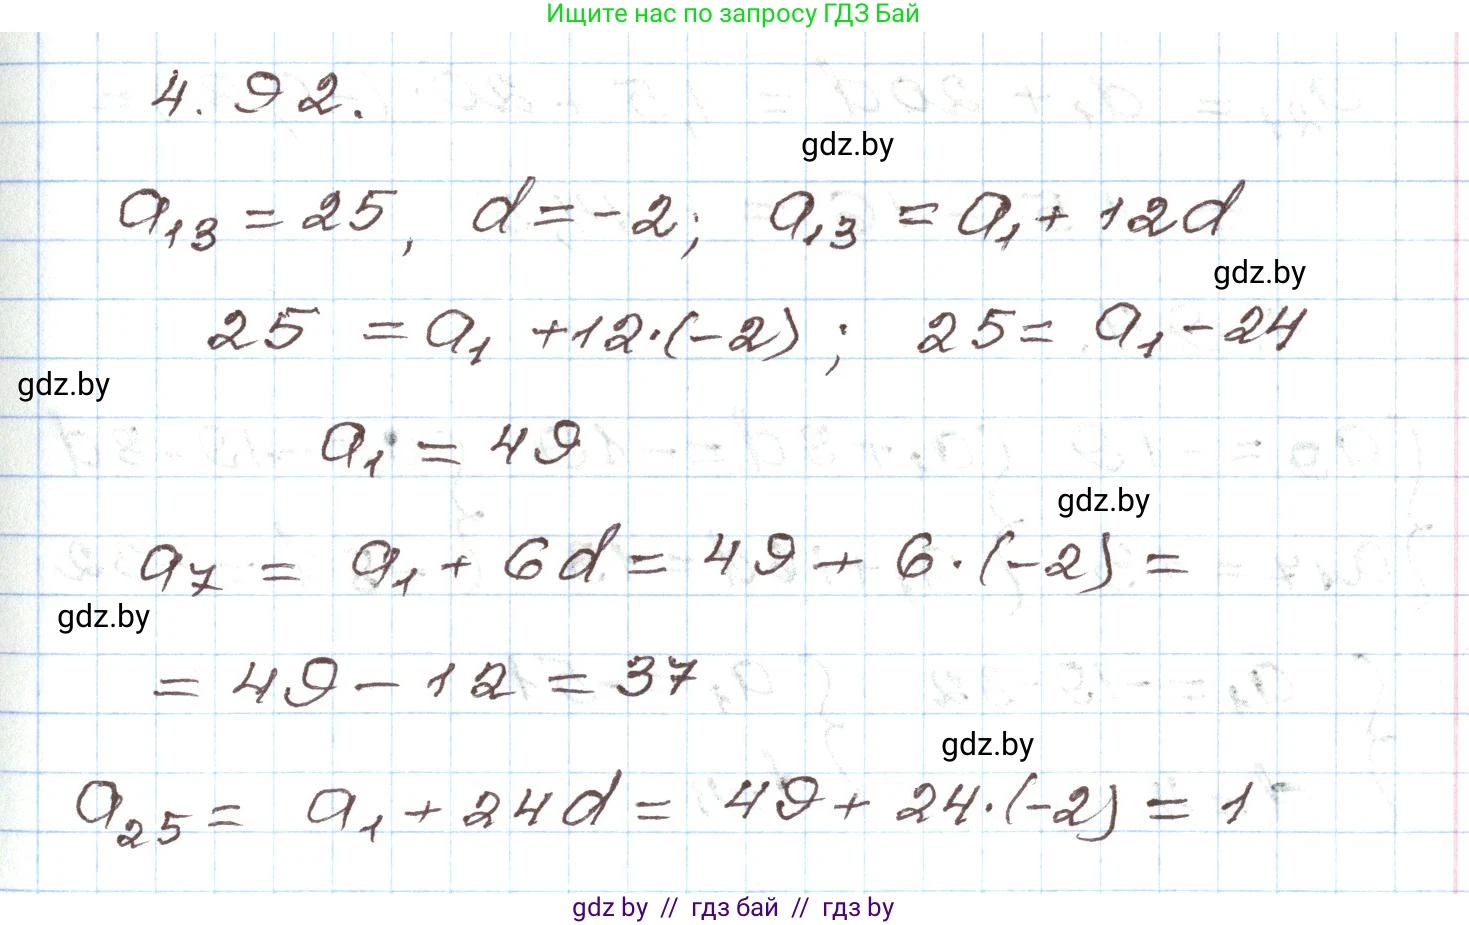 Ищите нас по запросу ГДЗ Бай
4.92.
gdz.by
a₁₃ = 25, d = -2; a₁₃ = a₁ + 12d
gdz.by
25 = a₁ + 12·(-2); 25 = a₁ - 24
gdz.by
a₁ = 49
gdz.by
a₇ = a₁ + 6d = 49 + 6·(-2) =
gdz.by
= 49 - 12 = 37
gdz.by
a₂₅ = a₁ + 24d = 49 + 24·(-2) = 1
gdz by // гдз бай // гдз by